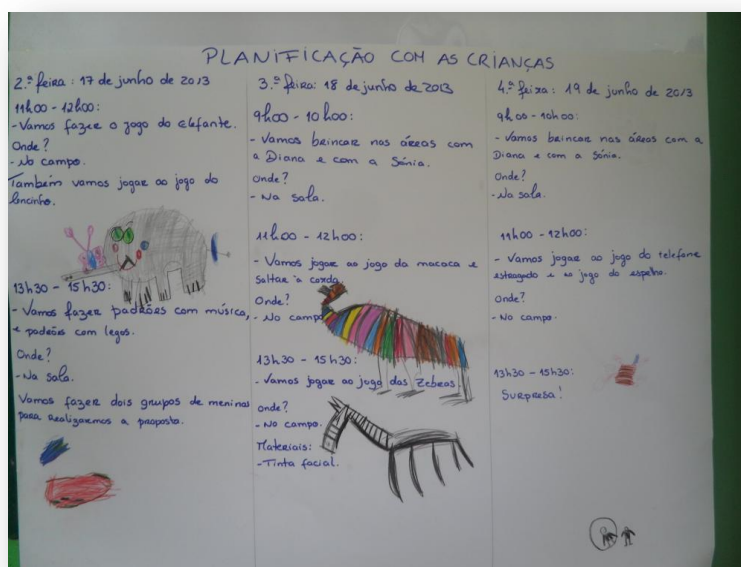 PLANIFICAÇÃO COM AS CRIANÇAS
2.ª feira: 17 de junho de 2013
11h00 - 12h00:
- Vamos fazer o jogo do elefante.
Onde?
- No campo.
Também vamos jogar ao jogo do
lencinho.
13h30 - 15h30:
- Vamos fazer padrões com música,
e padrões com legos.
Onde?
- Na sala.
Vamos fazer dois grupos de meninos
para realizarmos a proposta.
3.ª feira: 18 de junho de 2013
9h00 - 10h00:
- Vamos brincar nas áreas com
a Diana e com a Sónia.
Onde?
- Na sala.
11h00 - 12h00:
- Vamos jogar ao jogo da macaca e
saltar à corda.
Onde?
- No campo
13h30 - 15h30:
- Vamos jogar ao jogo das Zebras.
Onde?
- No campo.
Materiais:
- Tinta facial.
4.ª feira: 19 de junho de 2013
9h00 - 10h00:
- Vamos brincar nas áreas com a
Diana e com a Sónia.
Onde?
- Na sala.
11h00 - 12h00:
- Vamos jogar ao jogo do telefone
estragado e ao jogo do espelho.
Onde?
- No campo.
13h30 - 15h30:
Surpresa!